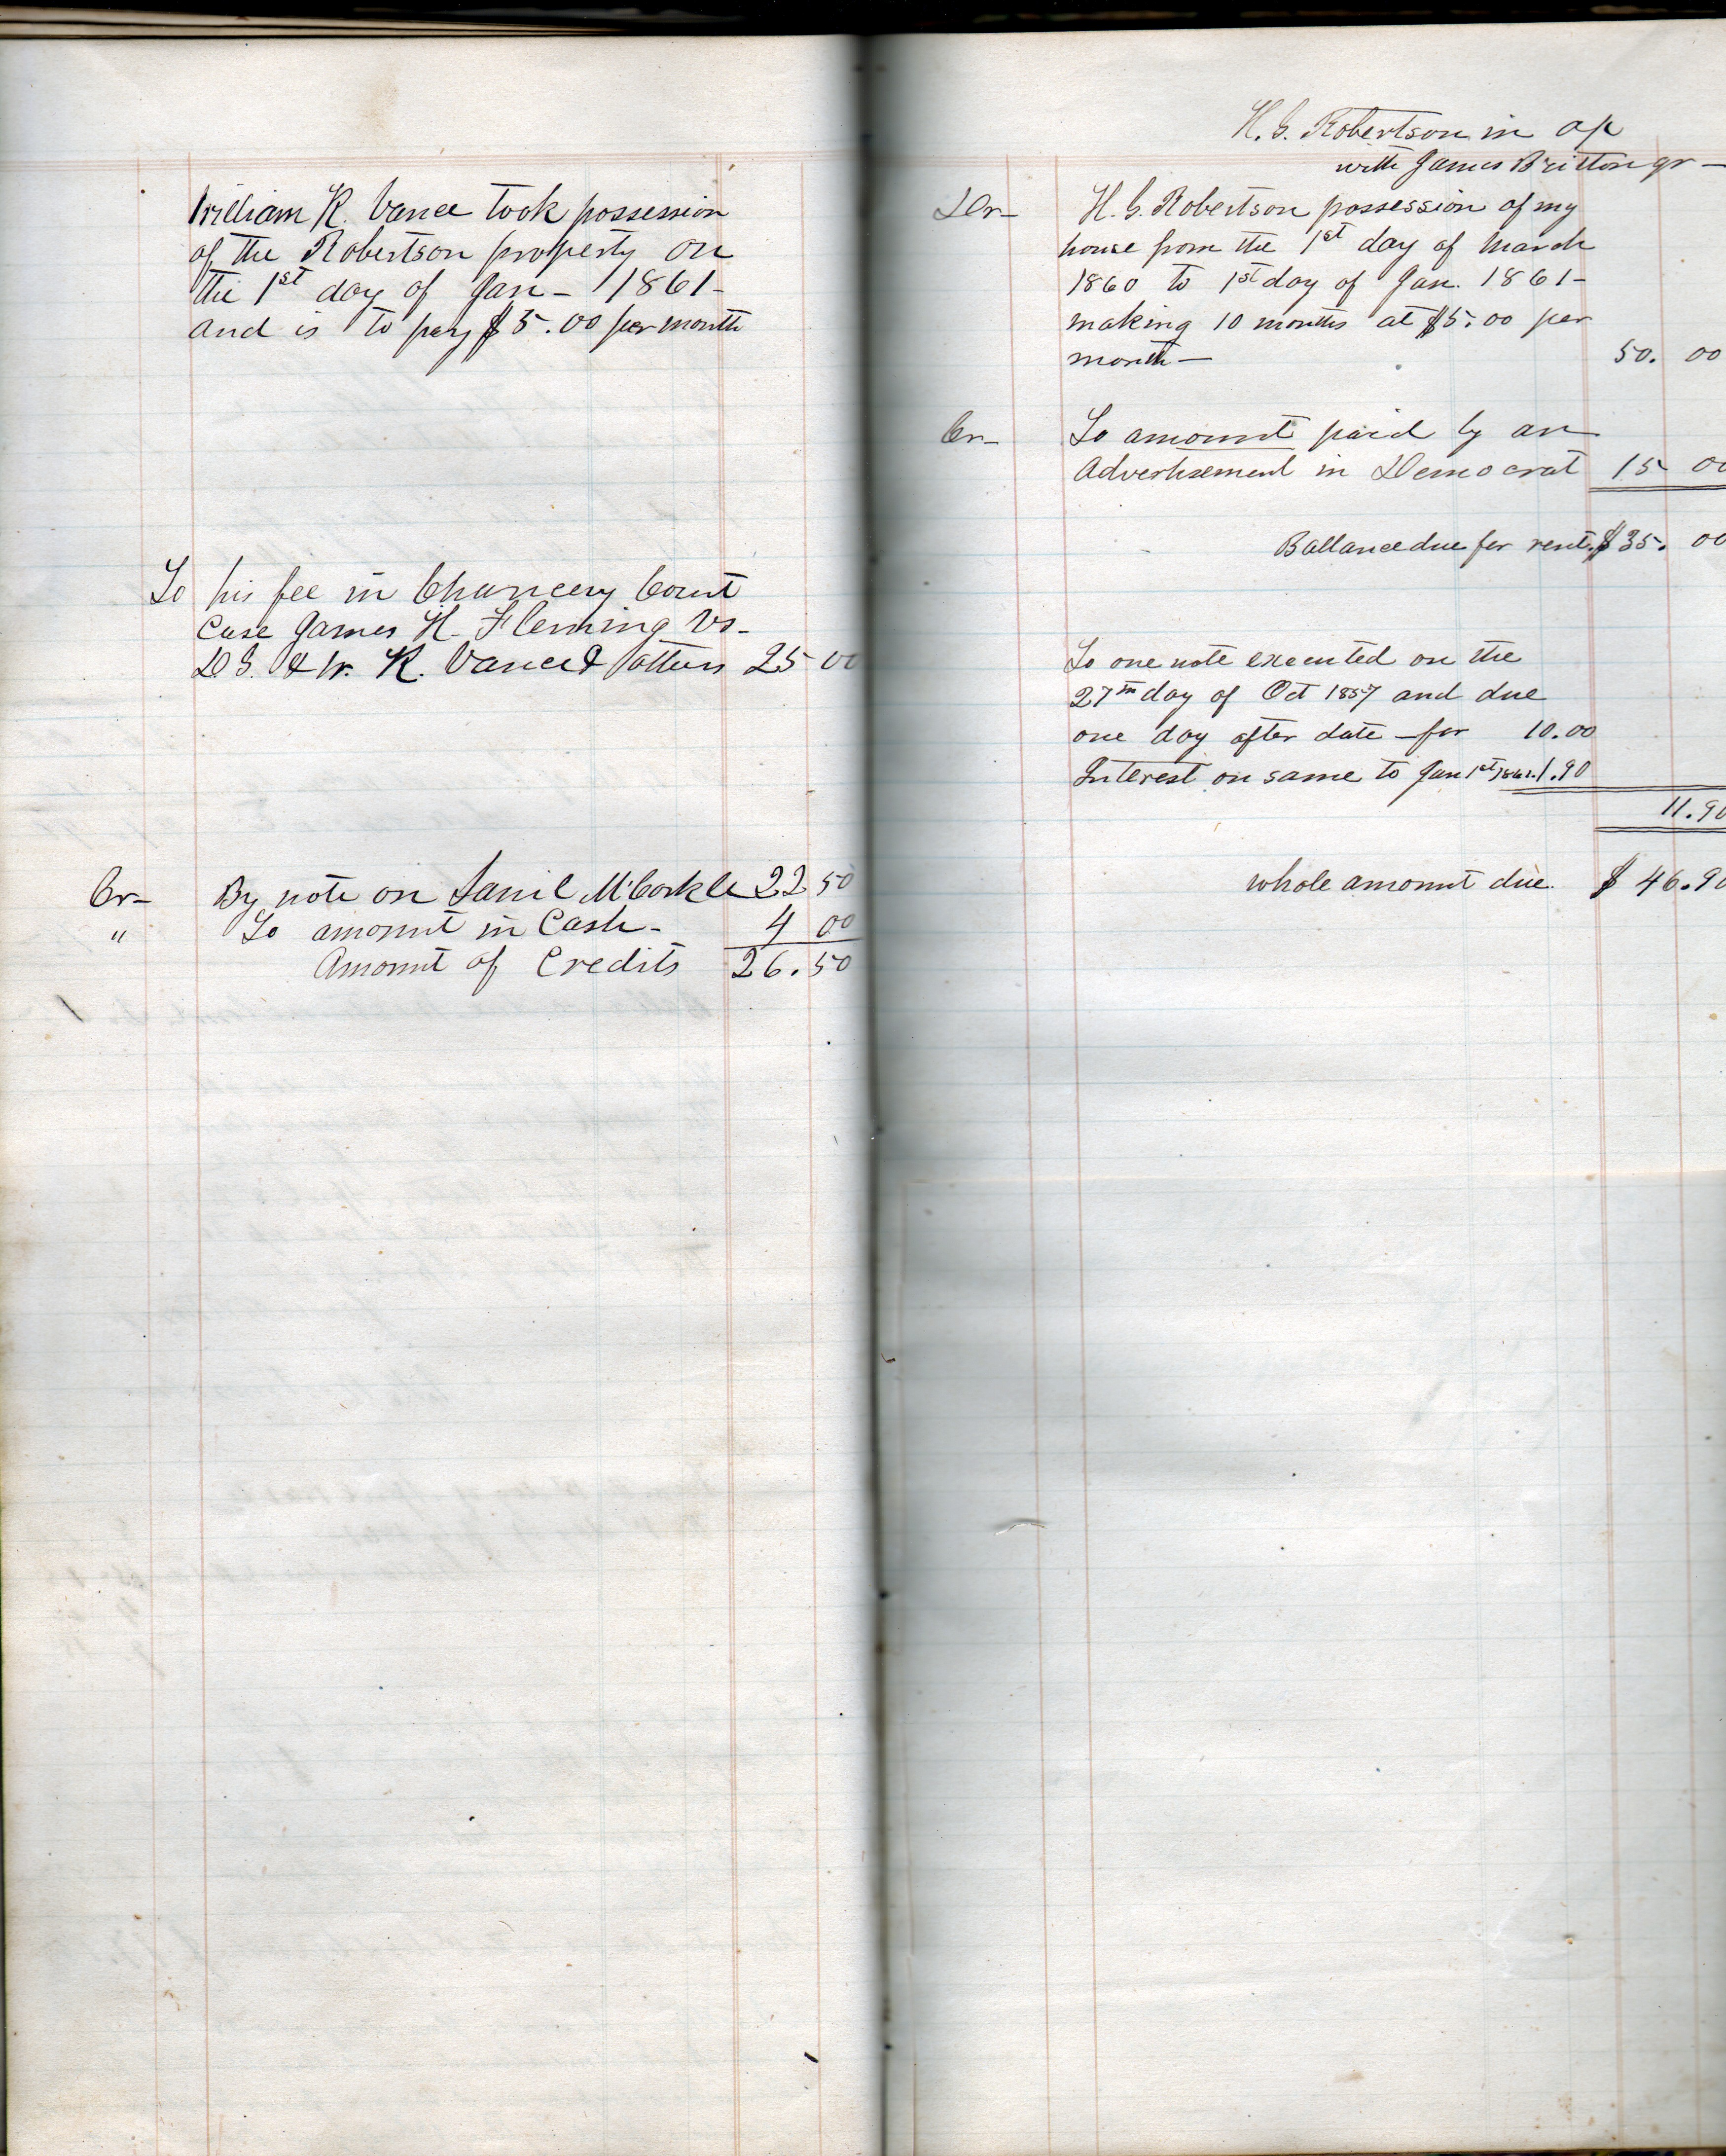 William K. Vance took possession
of the Robertson property on
the 1st day of Jan - 1861 -
and is to pay $5.00 per month
To his fee in Chancery Court
Case James H. Fleming vs -
D.G. & W. K. Vance & others 25 00
Cr - By note on Saml McCorkle 22 50
" To amount in Cash - 4 00
Amount of Credits 26.50
H. G. Robertson in a/c
with James Britton Jr -
Dr - H. G. Robertson possession of my
house from the 1st day of March
1860 to 1st day of Jan. 1861 -
making 10 months at $5.00 per
month - 50. 00
Cr - To amount paid by an
Advertisement in Democrat 15 00
Ballance due for rent. $35. 00
To one note executed on the
27th day of Oct 1857 and due
one day after date - for 10.00
Interest on same to Jan 1st 1861. 1.90
11.90
whole amount due. $46.90